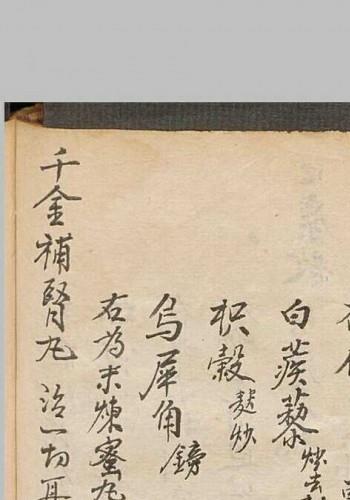 白蒺藜炒去
枳殼麸炒
烏犀角鎊
右為末煉蜜丸
千金補腎丸 治一切耳